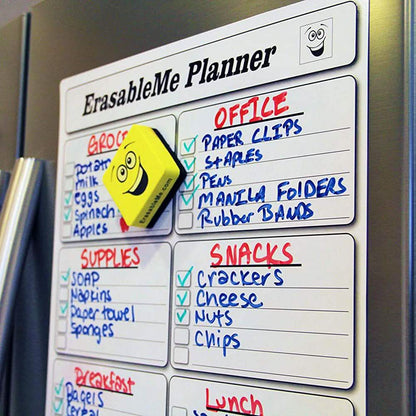 ErasableMe Planner
GROC
Potato
milk
eggs
Spinach
Apples
ErasableMe.com
OFFICE
PAPER CLIPS
STAPLES
PENS
MANILA FOLDERS
Rubber BANDS
SUPPLIES
SOAP
Napkins
Paper towel
Sponges
SNACKS
Crackers
Cheese
Nuts
Chips
Breakfast
Bagels
Cereal
Lunch